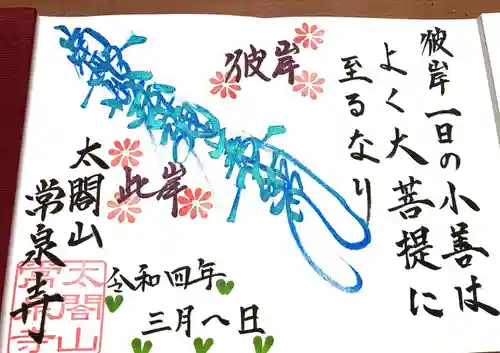 彼岸一日の小善は
よく大菩提に
至るなり
彼岸
此岸
太閤山
常泉寺
太閤山
常泉寺
令和四年
三月八日